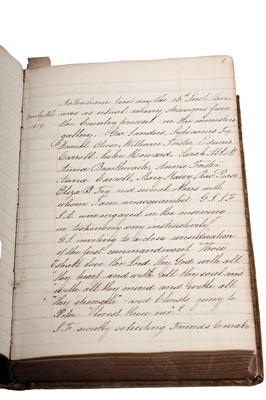 1
Tottenham first day the 16th Inst. there
was as usual many strangers from
the Country present in the ministers
gallery. Geo. Sanders, Sylvanus Fox
Daniel Oliver, William Forster Edwin
Carroll John Howard. Sarah
Anna Braithwaite, Anna Forster
Anna Carroll, Mary Rae Pease
Eliza P. Fry and several others with
whom I am unacquainted. G. S. S. F.
were engaged in the morning
in testimony very instructively
G. S. inviting to a close consideration
of the first commandment "Thou
shalt love the Lord thy God with all
thy heart, and with all thy soul and
with all thy mind and with all
thy strength" and Christs going to
Peter "lovest thou me"
S. F. sweetly soliciting Friends to make